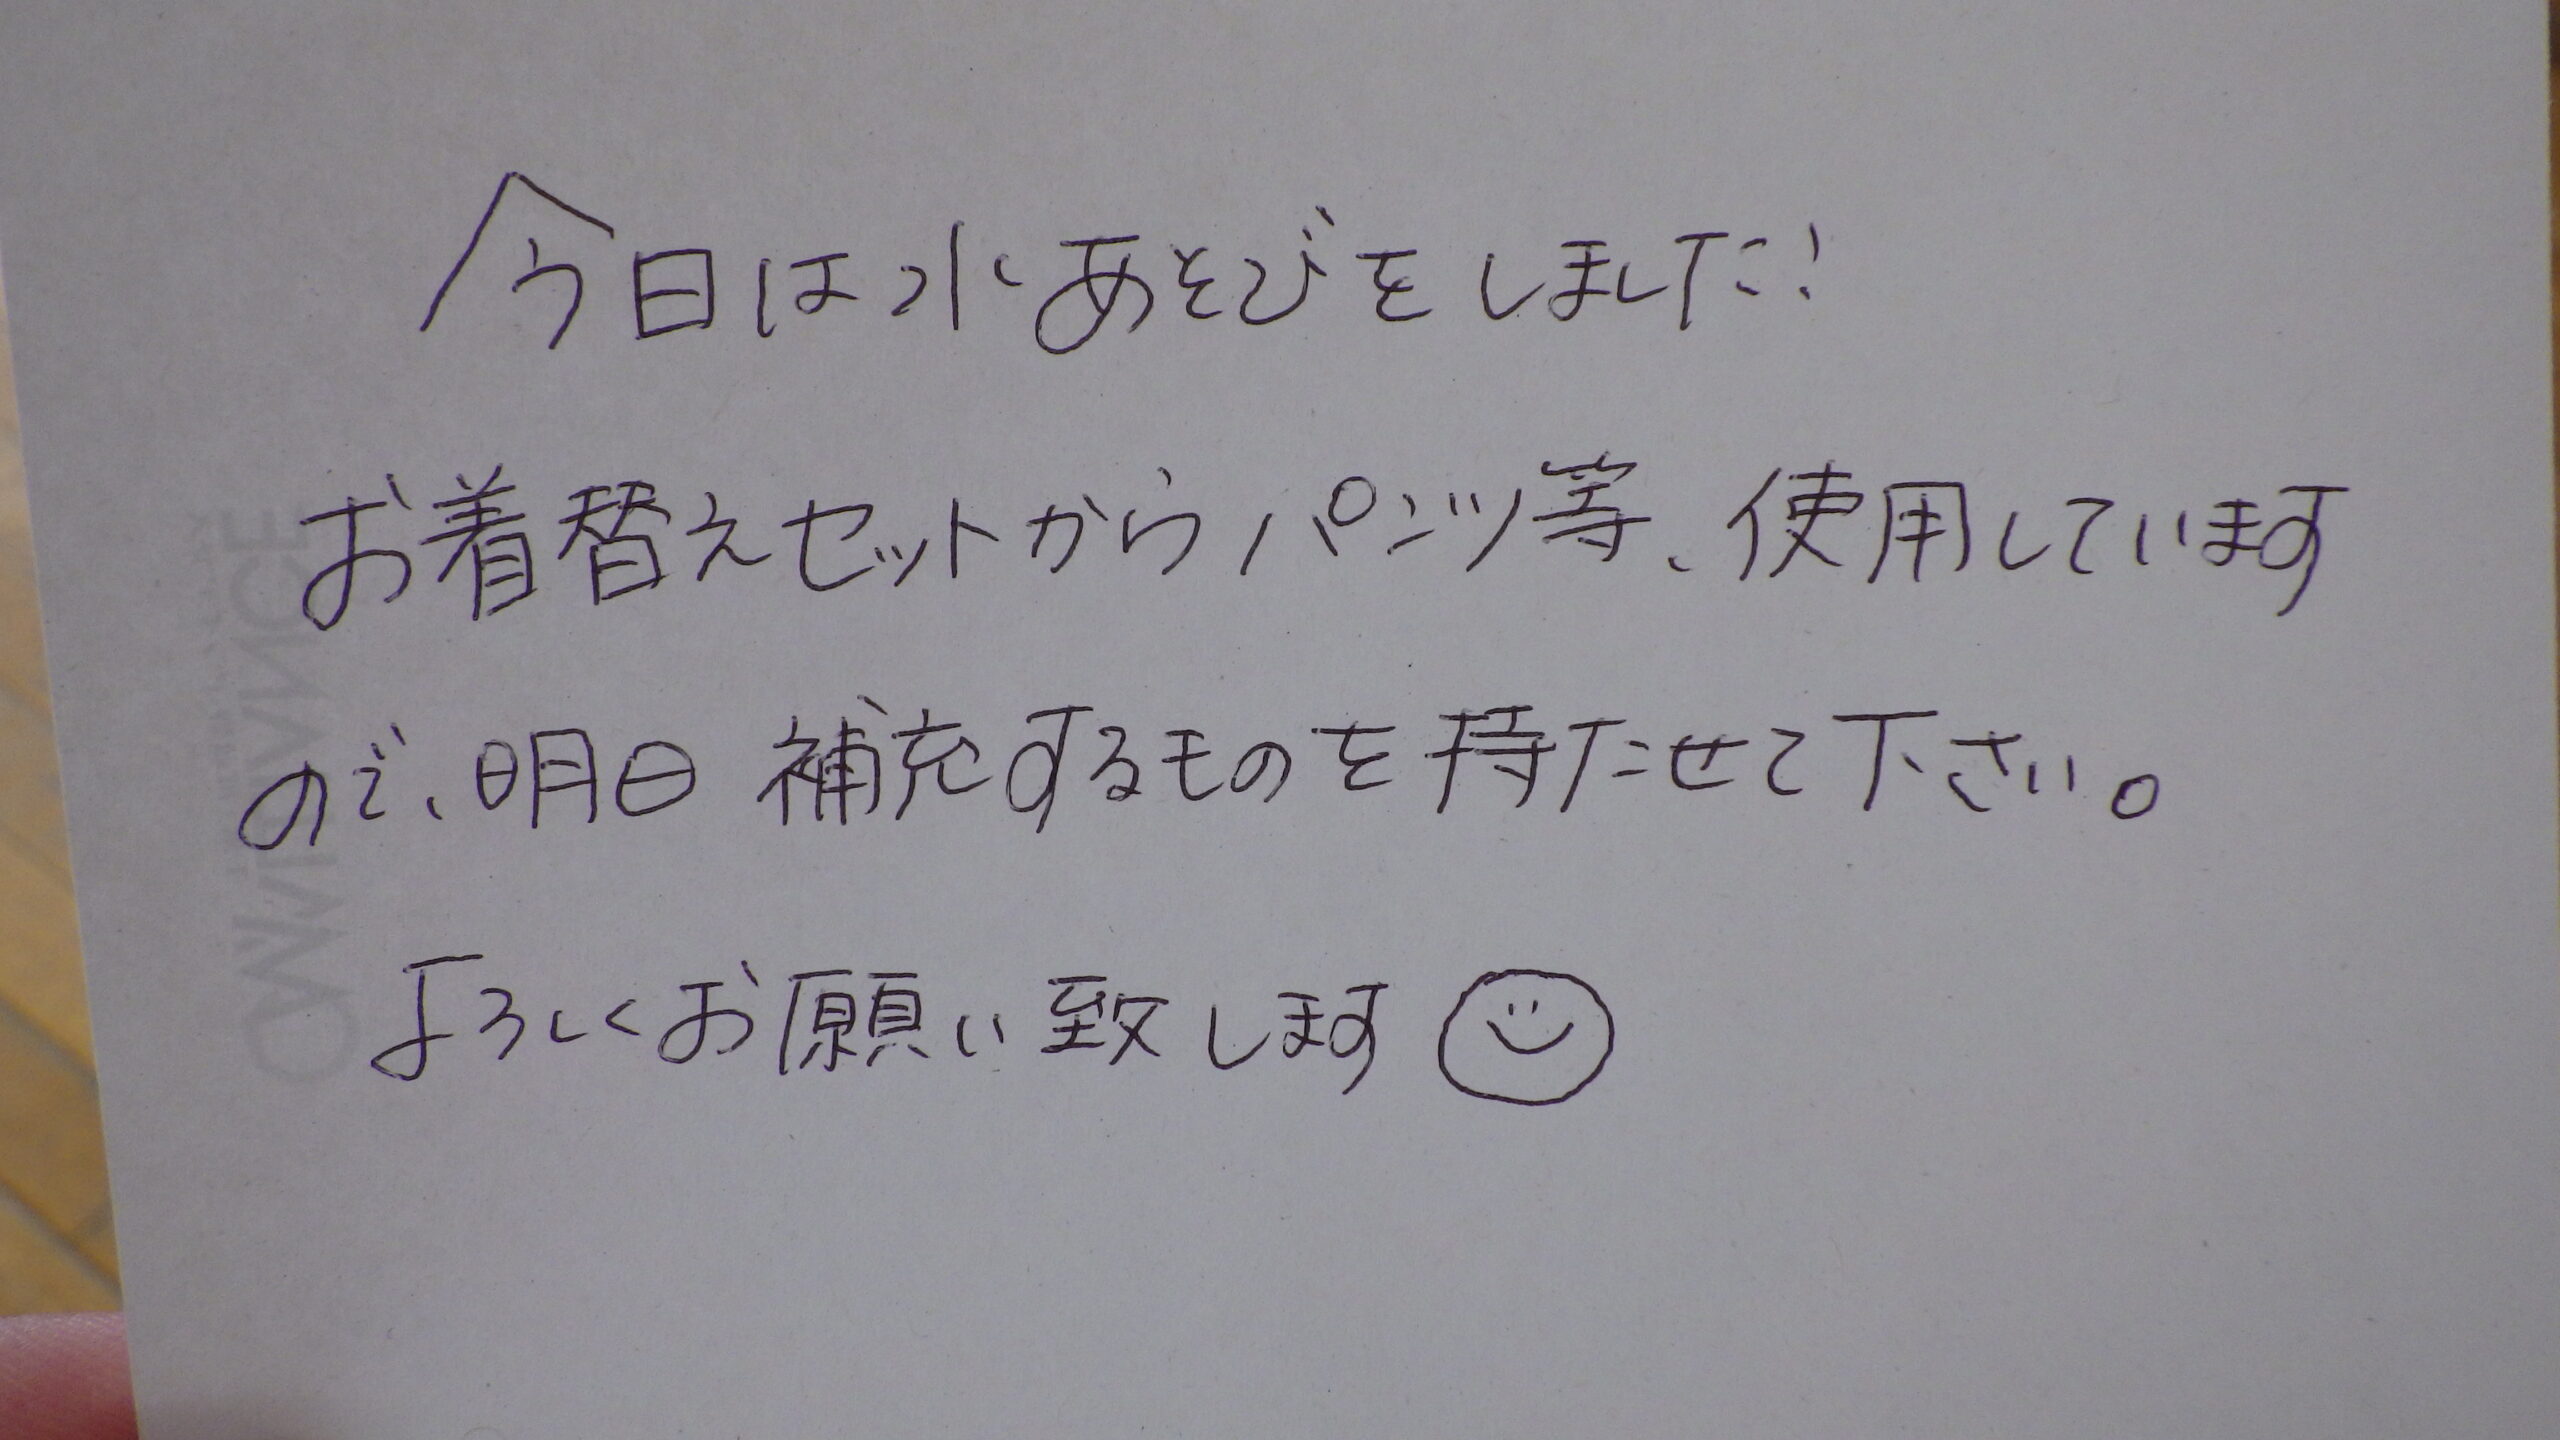 今日は水あそびをしました!
お着替えセットからパンツ等、使用しています
ので、明日 補充するものを持たせて下さい。
よろしくお願い致します